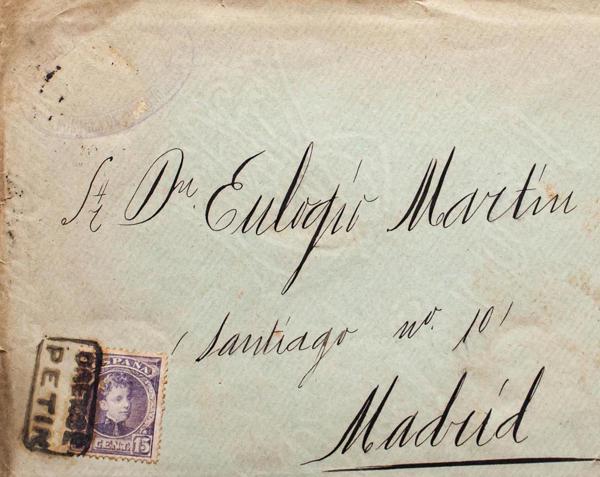 Sr Dn. Eulogio Martin
Santiago nº. 10
Madrid
ESPAÑA
15 CENTS
PETIN